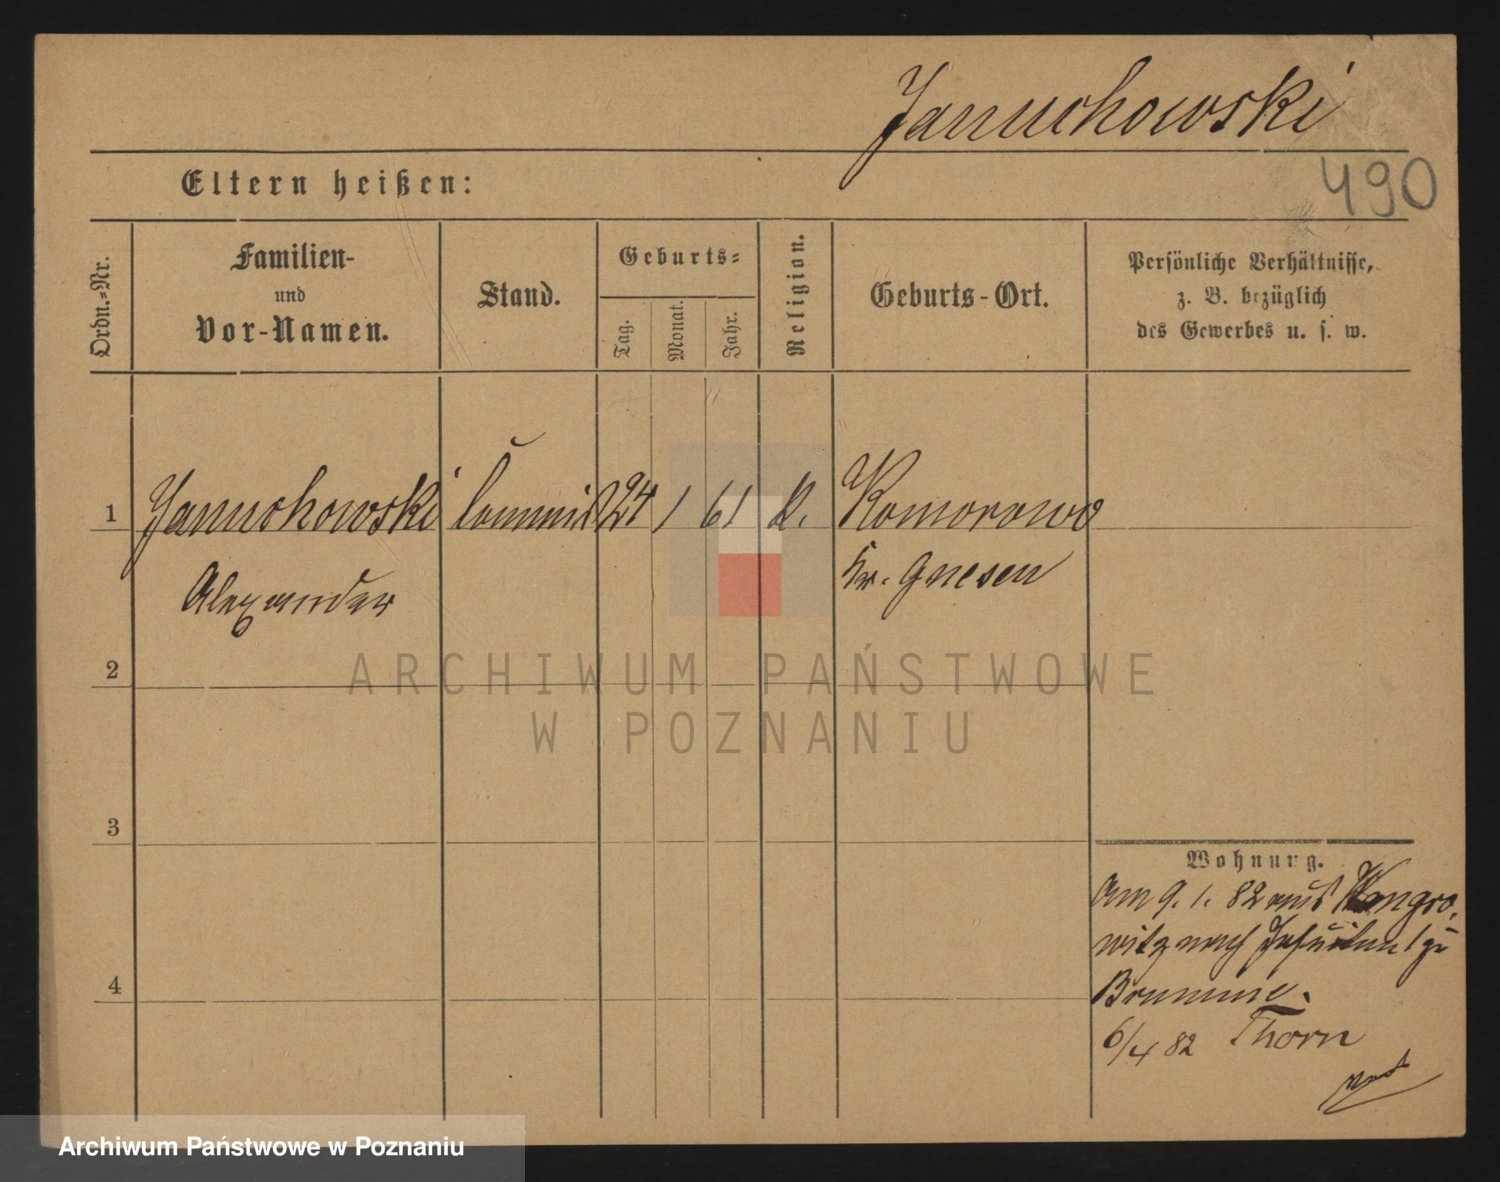 Januchowski
490
Eltern heißen:
Ordn.-Nr.
Familien-
und
Vor-Namen.
Stand.
Geburts-
Tag.
Monat.
Jahr.
Religion.
Geburts-Ort.
Persönliche Verhältnisse,
z. B. bezüglich
des Gewerbes u. s. w.
1 Januchowski Commis 24 1 61 K. Komorowo
Alexander Kr. Gnesen
2
ARCHIWUM PAŃSTWOWE
W POZNANIU
3
Wohnung.
Am 9. 1. 82 aus Wongro-
witz nach Jesuitenstr zu
4
Brumme.
6/4 82 Thorn
Archiwum Państwowe w Poznaniu